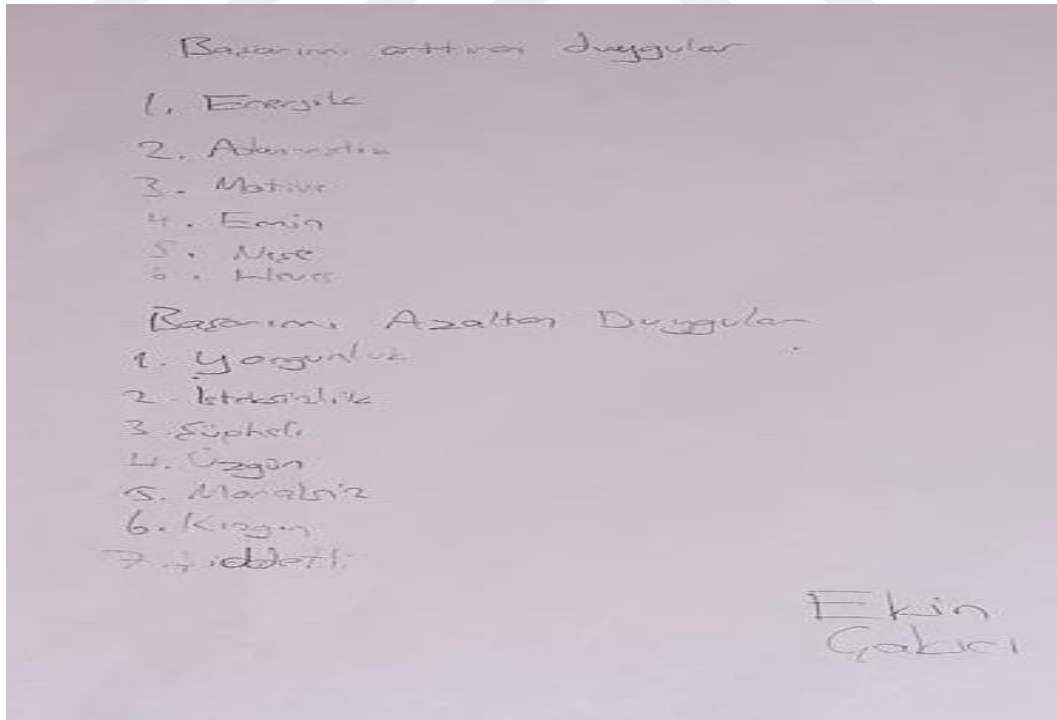 Başarımı arttıran duygular
1. Enerjik
2.
3. Motive
4. Emin
5. Neşe
6. Heves
Başarımı Azaltan Duygular
1. Yorgunluk
2. İsteksizlik
3. Şüpheli
4. Üzgün
5. Moralsiz
6. Kızgın
7. Şiddetli
Ekin
Çakıcı